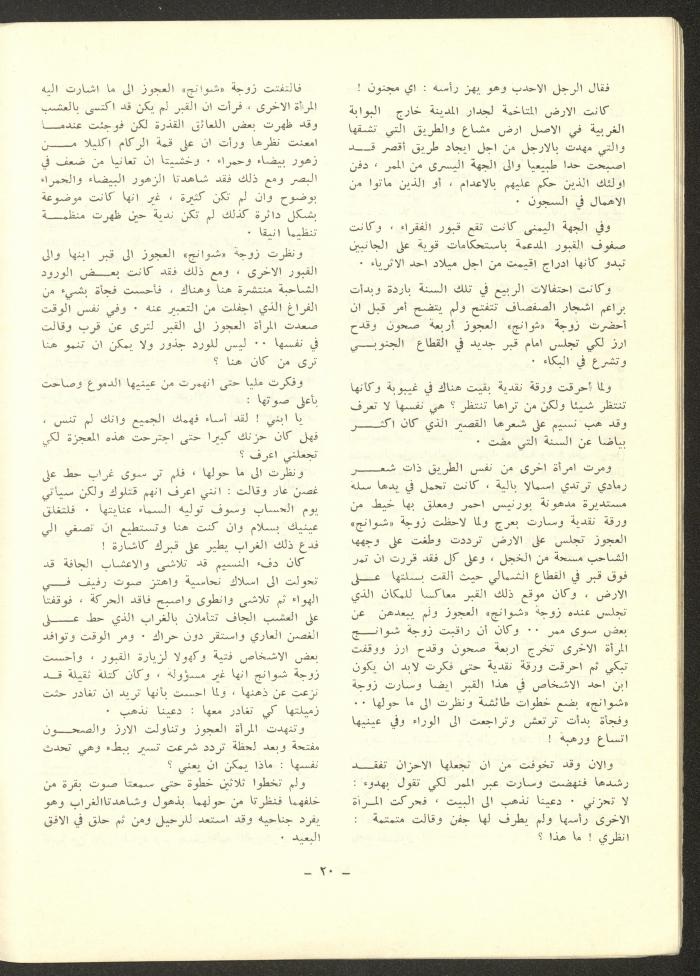 فقال الرجل الاحدب وهو يهز رأسه : اي مجنون !
كانت الارض المتاخمة لجدار المدينة خارج البوابة
الغربية في الاصل ارض مشاع والطريق التي تشقها
والتي مهدت بالارجل من اجل ايجاد طريق أقصر قد
اصبحت حدا طبيعيا والى الجهة اليسرى من الممر ، دفن
اولئك الذين حكم عليهم بالاعدام ، أو الذين ماتوا من
الاهمال في السجون .
وفي الجهة اليمنى كانت تقع قبور الفقراء ، وكانت
صفوف القبور المدعمة باستحكامات قوية على الجانبين
تبدو كأنها ادراج اقيمت من اجل ميلاد احد الاثرياء .
وكانت احتفالات الربيع في تلك السنة باردة وبدأت
براعم اشجار الصفصاف تتفتح ولم يتضح أمر قبل ان
أحضرت زوجة «شوانج» العجوز أربعة صحون وقدح
ارز لكي تجلس امام قبر جديد في القطاع الجنوبي
وتشرع في البكاء .
ولما أحرقت ورقة نقدية بقيت هناك في غيبوبة وكانها
تنتظر شيئا ولكن من تراها تنتظر ؟ هي نفسها لا تعرف
وقد هب نسيم على شعرها القصير الذي كان اكثر
بياضا عن السنة التي مضت .
ومرت امرأة اخرى من نفس الطريق ذات شعر
رمادي ترتدي اسمالا بالية ، كانت تحمل في يدها سله
مستديرة مدهونة بورنيس احمر ومعلق بها خيط من
ورقة نقدية وسارت بعرج ولما لاحظت زوجة «شوانج»
العجوز تجلس على الارض ترددت وطغت على وجهها
الشاحب مسحة من الخجل ، وعلى كل فقد قررت ان تمر
فوق قبر في القطاع الشمالي حيث القت بسلتها على
الارض ، وكان موقع ذلك القبر معاكسا للمكان الذي
تجلس عنده زوجة «شوانج» العجوز ولم يبعدهن عن
بعض سوى ممر .. وكان أن راقبت زوجة شوانج
المرأة الاخرى تخرج اربعة صحون وقدح ارز ووقفت
تبكي ثم احرقت ورقة نقدية حتى فكرت لابد ان يكون
ابن احد الاشخاص في هذا القبر ايضا وسارت زوجة
«شوانج» بضع خطوات طائشة ونظرت الى ما حولها ..
وفجأة بدأت ترتعش وتراجعت الى الوراء وفي عينيها
اتساع ورهبة !
والان وقد تخوفت من ان تجعلها الاحزان تفقد
رشدها فنهضت وسارت عبر الممر لكي تقول بهدوء :
لا تحزني . دعينا نذهب الى البيت ، فحركت المرأة
الاخرى رأسها ولم يطرف لها جفن وقالت متمتمة :
انظري ! ما هذا ؟
فالتفتت زوجة «شوانج» العجوز الى ما اشارت اليه
المرأة الاخرى ، فرأت ان القبر لم يكن قد اكتسى بالعشب
وقد ظهرت بعض اللعائق القذرة لكن فوجئت عندما
امعنت نظرها ورأت ان على قمة الركام اكليلا من
زهور بيضاء وحمراء . وخشيتا ان تعانيا من ضعف في
البصر ومع ذلك فقد شاهدتا الزهور البيضاء والحمراء
بوضوح وان لم تكن كثيرة ، غير انها كانت موضوعة
بشكل دائرة كذلك لم تكن ندية حين ظهرت منظمة
تنظيما انيقا .
ونظرت زوجة «شوانج» العجوز الى قبر ابنها والى
القبور الاخرى ، ومع ذلك فقد كانت بعض الورود
الشاحبة منتشرة هنا وهناك ، فأحست فجأة بشيء من
الفراغ الذي اجفلت من التعبير عنه . وفي نفس الوقت
صعدت المرأة العجوز الى القبر لترى عن قرب وقالت
في نفسها .. ليس للورد جذور ولا يمكن ان تنمو هنا
ترى من كان هنا ؟
وفكرت مليا حتى انهمرت من عينيها الدموع وصاحت
بأعلى صوتها :
يا ابني ! لقد أساء فهمك الجميع وانك لم تنس ،
فهل كان حزنك كبيرا حتى اجترحت هذه المعجزة لكي
تجعلني اعرف ؟
ونظرت الى ما حولها ، فلم تر سوى غراب حط على
غصن عار وقالت : انني اعرف انهم قتلوك ولكن سيأتي
يوم الحساب وسوف توليه السماء عنايتها . فلتغلق
عينيك بسلام وان كنت هنا وتستطيع ان تصغي الي
فدع ذلك الغراب يطير على قبرك كاشارة !
كان دفء النسيم قد تلاشى والاعشاب الجافة قد
تحولت الى اسلاك نحاسية واهتز صوت رفيف في
الهواء ثم تلاشى وانطوى واصبح فاقد الحركة ، فوقفتا
على العشب الجاف تتأملان بالغراب الذي حط على
الغصن العاري واستقر دون حراك . ومر الوقت وتوافد
بعض الاشخاص فتية وكهولا لزيارة القبور ، وأحست
زوجة شوانج انها غير مسؤولة ، وكان كتلة ثقيلة قد
نزعت عن ذهنها ، ولما احست بأنها تريد ان تغادر حثت
زميلتها كي تغادر معها : دعينا نذهب .
وتنهدت المرأة العجوز وتناولت الارز والصحون
مفتحة وبعد لحظة تردد شرعت تسير ببطء وهي تحدث
نفسها : ماذا يمكن ان يعني ؟
ولم تخطوا ثلاثين خطوة حتى سمعتا صوت بقرة من
خلفهما فنظرتا من حولهما بذهول وشاهدتاالغراب وهو
يفرد جناحيه وقد استعد للرحيل ومن ثم حلق في الافق
البعيد .
– ٢٠ –